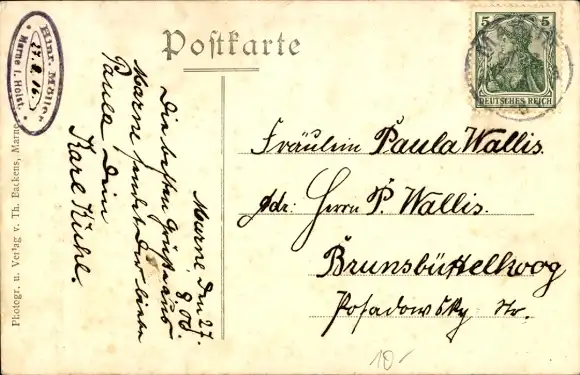 Postkarte
5 5
DEUTSCHES REICH
Hinr. Möller
27. 8. 06.
* Marne i. Holst. *
Photogr. u. Verlag v. Th. Backens, Marne
Marne, den 27.
8. 06.
Die besten Grüße aus
Marne sendet Dir liebe
Paula Dein
Karl Kühl.
Fräulein Paula Wallis.
Adr: Herrn P. Wallis.
Brunsbüttelkoog
Posadowsky Str.
10-